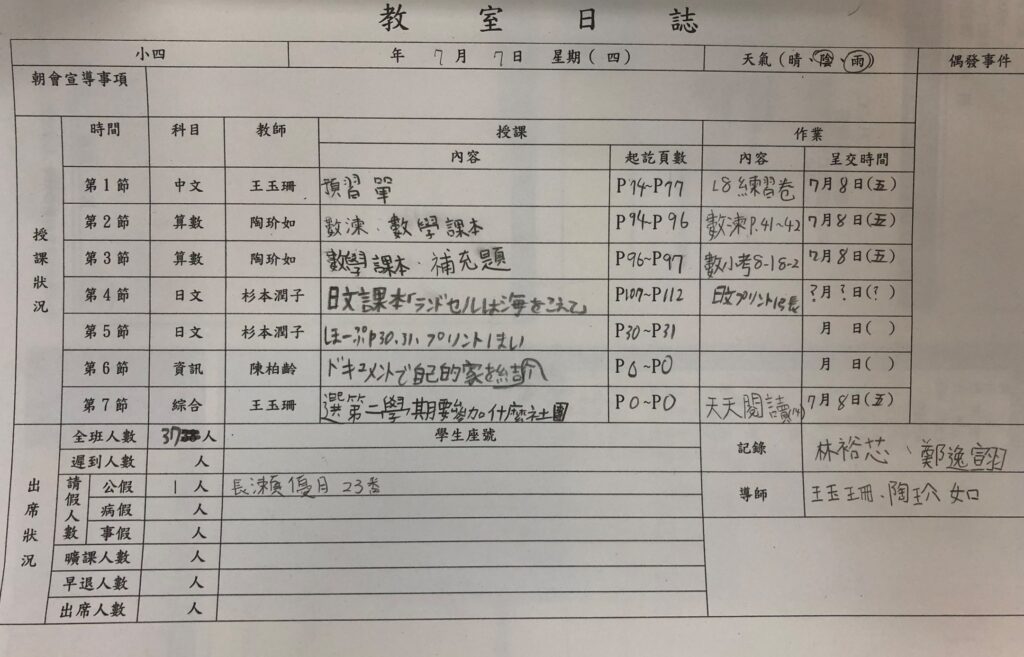 教室日誌
小四 年 7月 7日 星期(四) 天氣(晴、陰、雨) 偶發事件
朝會宣導事項
授課狀況
時間 科目 教師 授課 作業
內容 起訖頁數 內容 呈交時間
第1節 中文 王玉珊 預習單 P74~P77 L8練習卷 7月8日(五)
第2節 算數 陶玠如 數涑、數學課本 P94~P96 數涑P.41~42 7月8日(五)
第3節 算數 陶玠如 數學課本、補充題 P96~P97 數小考8-1 8-2 7月8日(五)
第4節 日文 杉本潤子 日文課本「ランドセルは海をこえて」 P107~P112 日文プリント ?月?日(?)
第5節 日文 杉本潤子 ほーぷp30.31、プリントほい P30~P31 月 日( )
第6節 資訊 陳柏齡 ドキュメントで自己的家を紹介 P0~P0 月 日( )
第7節 綜合 王玉珊 選第二學期要參加什麼社團 P0~P0 天天閱讀 7月8日(五)
出席狀況
全班人數 37人 學生座號 記錄 林裕芯、鄭逸
遲到人數 人
請假人數 公假 1人 長瀨優月 23番 導師 王玉珊、陶玠如
病假 人
事假 人
曠課人數 人
早退人數 人
出席人數 人